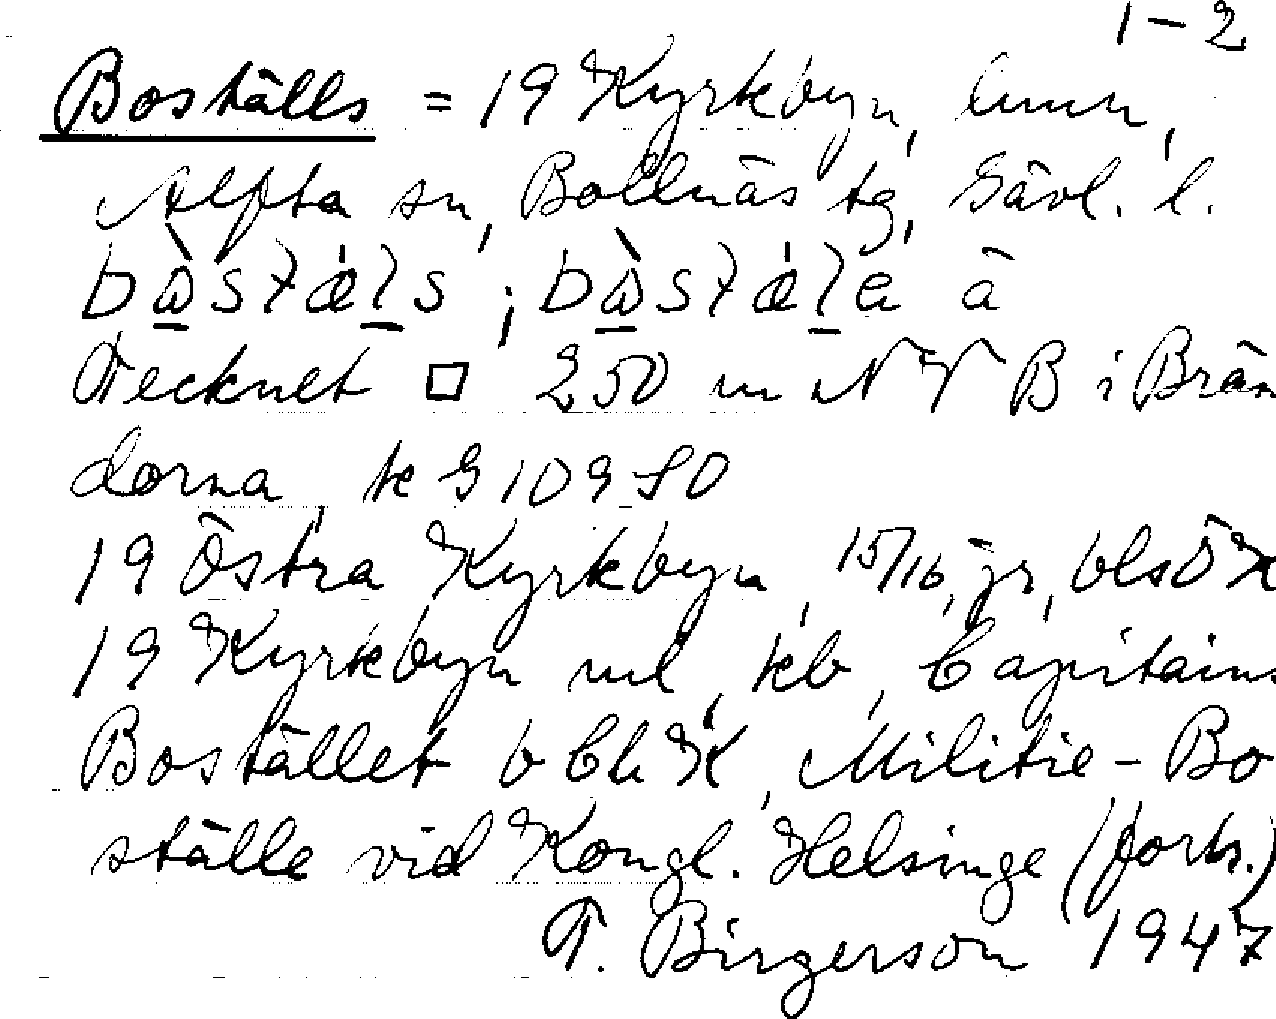 1-2
Boställs = 19 Kyrkbyn, lmn,
Alfta sn, Bollnäs tg, Gävl. l.
å
Tecknet □ 250 m NV B i Brän
dorna, ek G 109 SO
19 Östra Kyrkbyn, 15/16, jr,
19 Kyrkbyn ml, kb, Capitains
Bostället, Militie-Bo
ställe vid Kongl. Helsinge (forts.)
T. Birgerson 1947